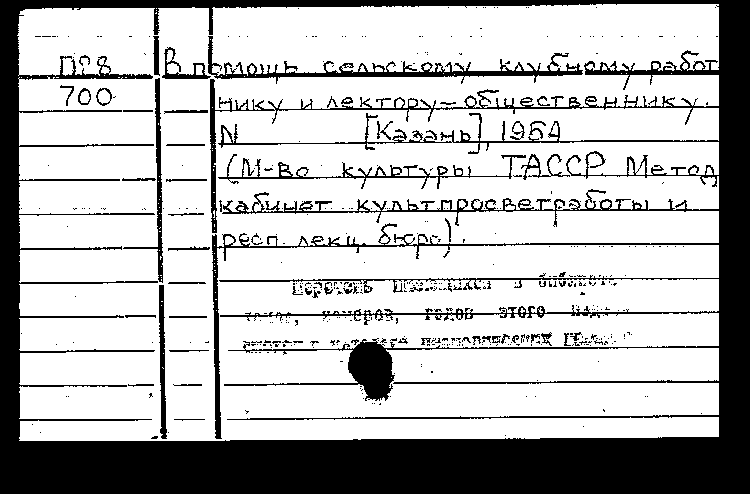 П28 В помощь сельскому клубному работ
700 нику и лектору-общественнику.
N [Казань], 1954
(М-во культуры ТАССР. Метод.
кабинет культпросветработы и
респ. лекц. бюро).
Перечень имеющихся в библиоте
томов, номеров, годов этого изда
смотри в каталоге периодических